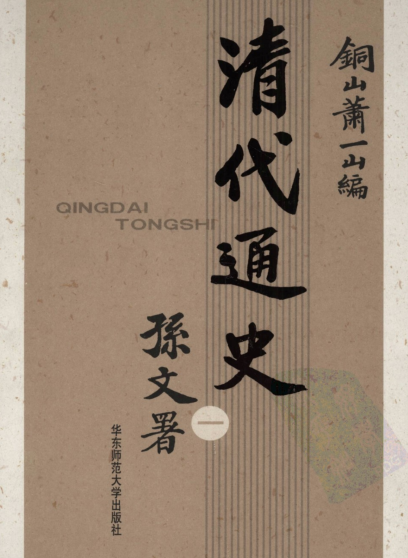 銅山蕭一山編
清代通史
QINGDAI
TONGSHI
孫文署
一
华东师范大学出版社